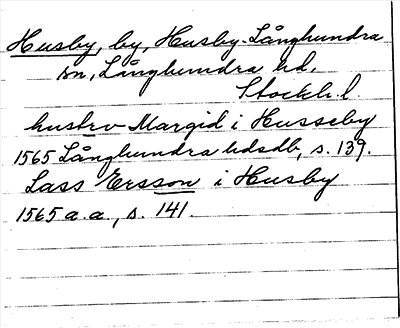 Husby, by, Husby-Långhundra
sn, Långhundra hd,
Stockh. l
hustrv Margid i Husseby
1565 Långhundra hdsdb, s. 139.
Lass Ersson i Husby
1565 a. a., s. 141.